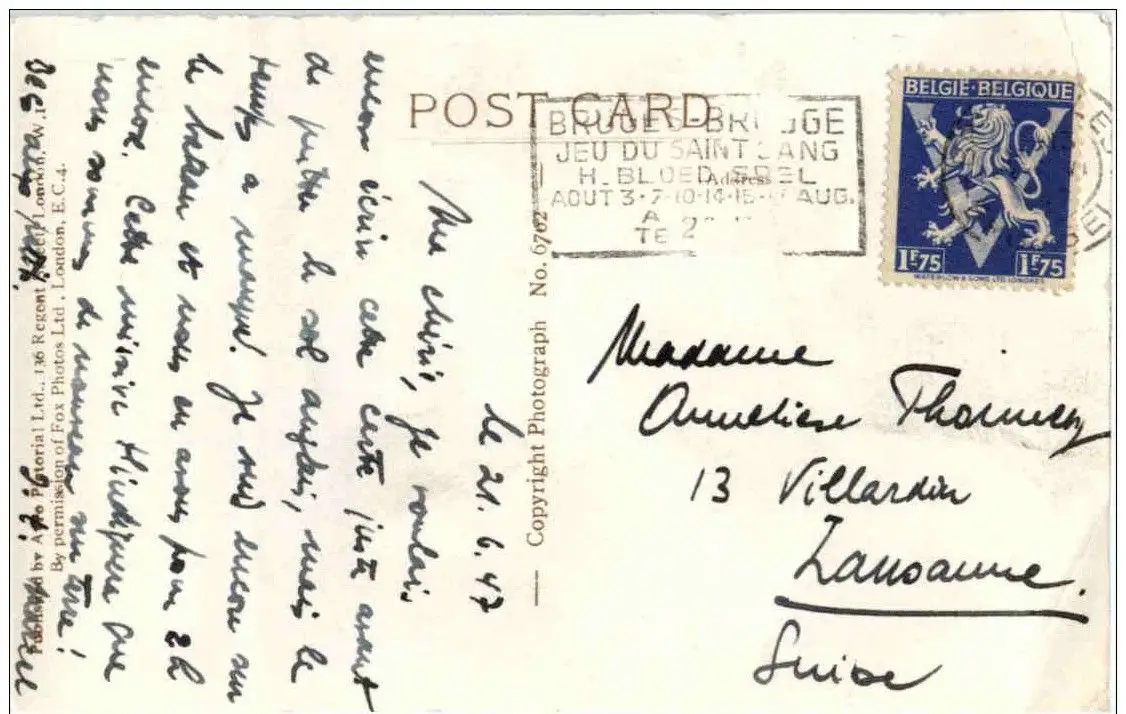 POST CARD
BRUGES-BRUGGE
JEU DU SAINT SANG
H. BLOED SPEL
Address
AOUT 3-7-10-14-16-17 AUG.
A
TE 2
BELGIE-BELGIQUE
1F75 1F75
WATERLOW & SONS LTD LONDRES
Le 21.6.47
Ma chérie, je voulais
encore écrire cette carte juste avant
de quitter le sol anglais, mais le
temps a manqué. Je suis encore sur
le bateau et nous en avons pour 2h
encore. Cette missive t'indiquera que
nous sommes de nouveau sur terre!
Copyright Photograph No. 6762
By permission of Fox Photos Ltd, London, E.C.4.
Pictorial Ltd., 136 Regent London, W.1.
Madame
Anneliese
13 Villardin
Lausanne.
Suisse